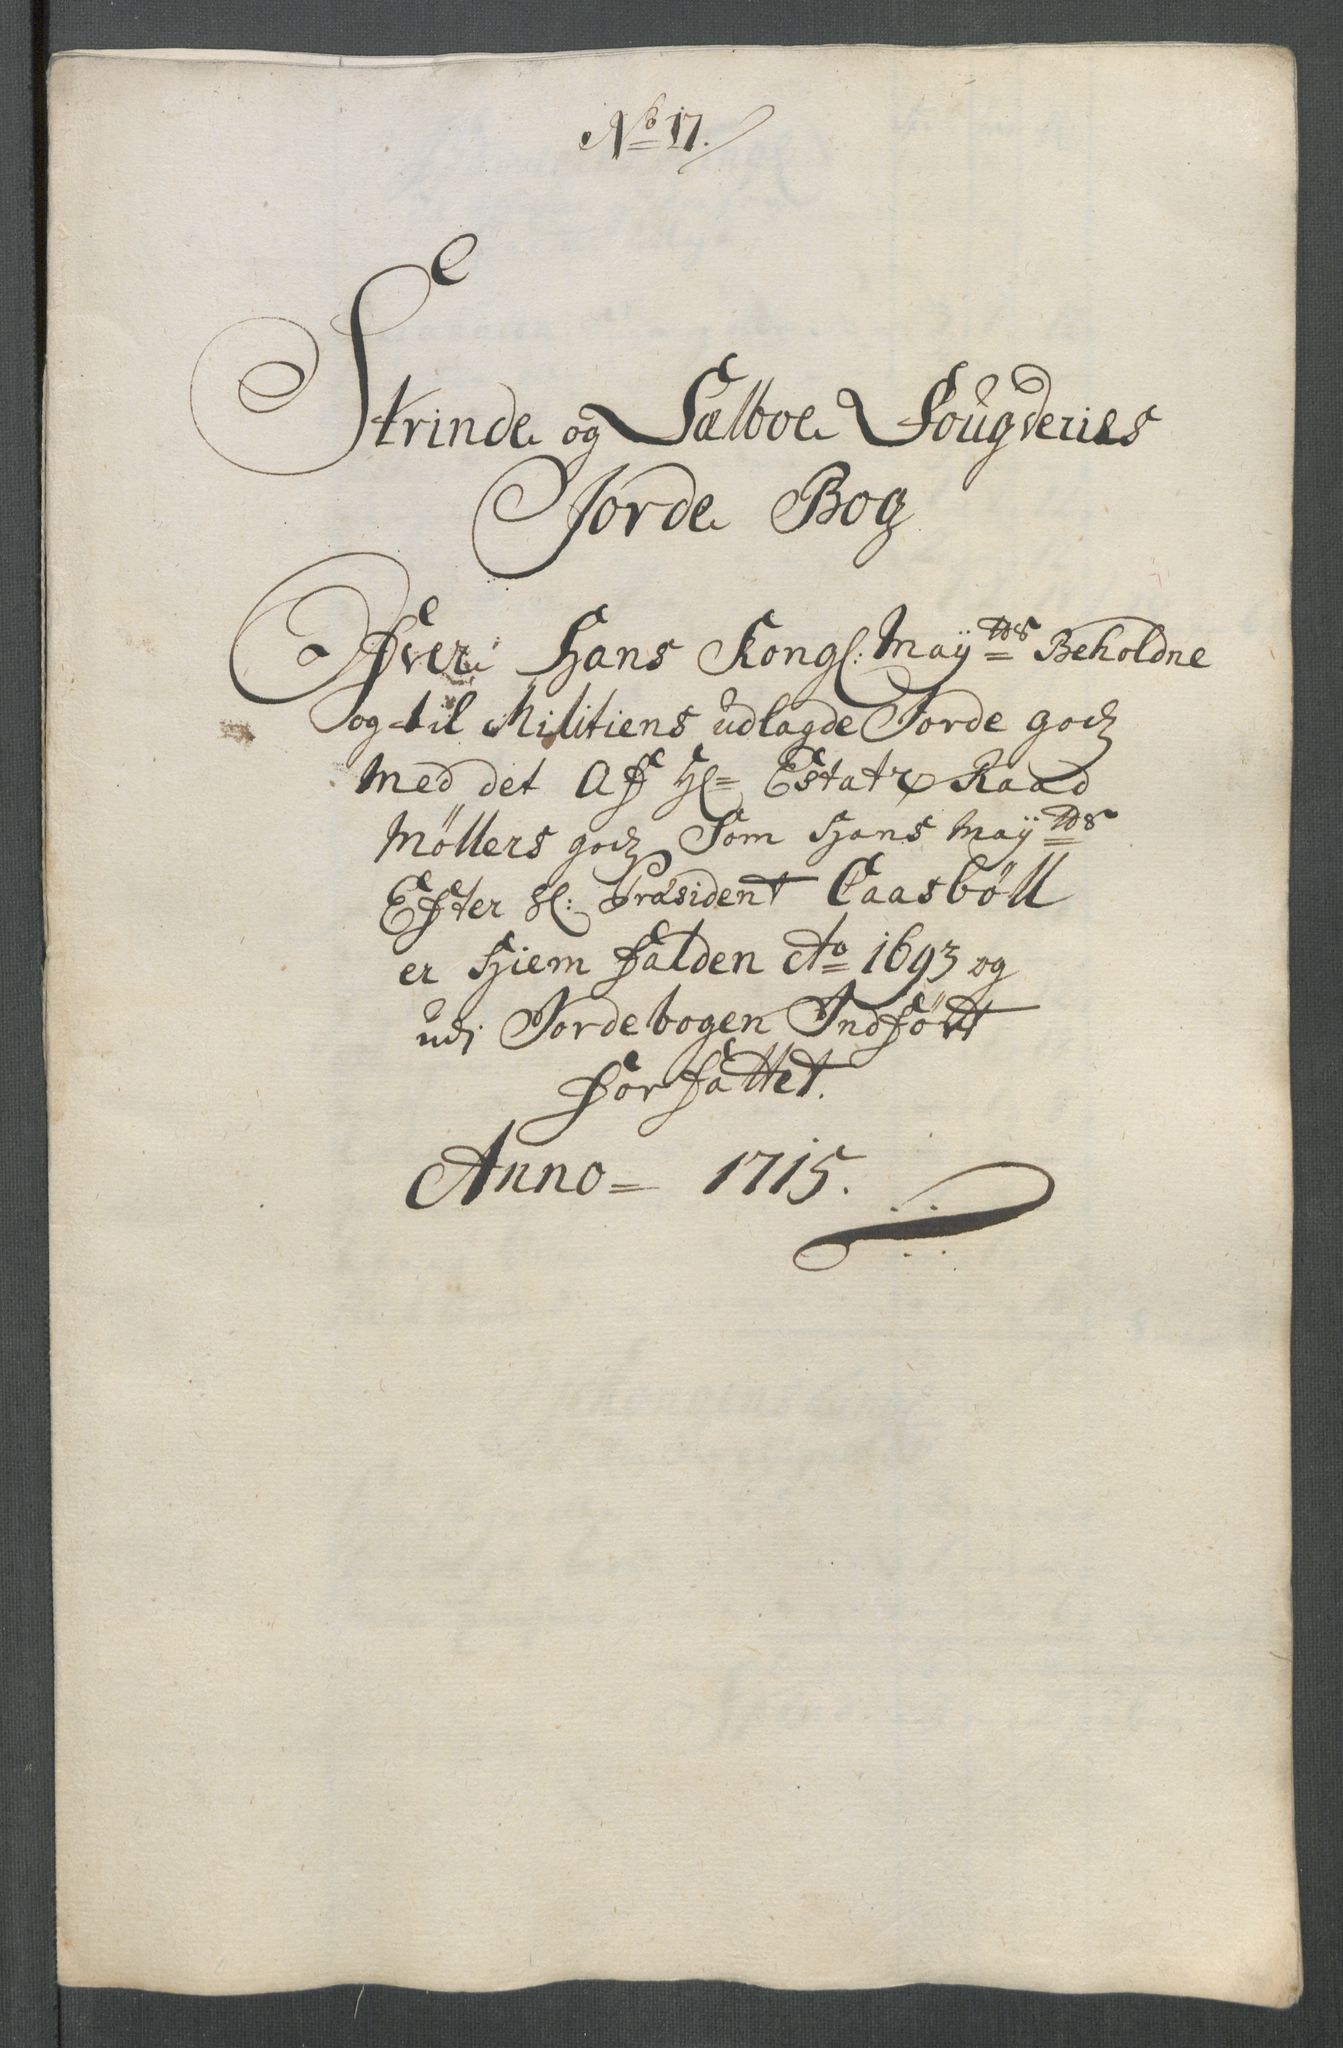 No 17.
Strinde og Sælboe Fougderies
Jorde Bog
Ofver Hans Kongl: Maÿtts Beholdne
og til Militiens udlagde Jorde godz
Med det Af Hl= Estatz Raad
Möllers godz Som Hans Maÿtts
Efter Sl: Præsident Caasböll
er Hiem falden Ao 1693 og
udj Jordebogen Indfört
forfattet.
Anno= 1715.